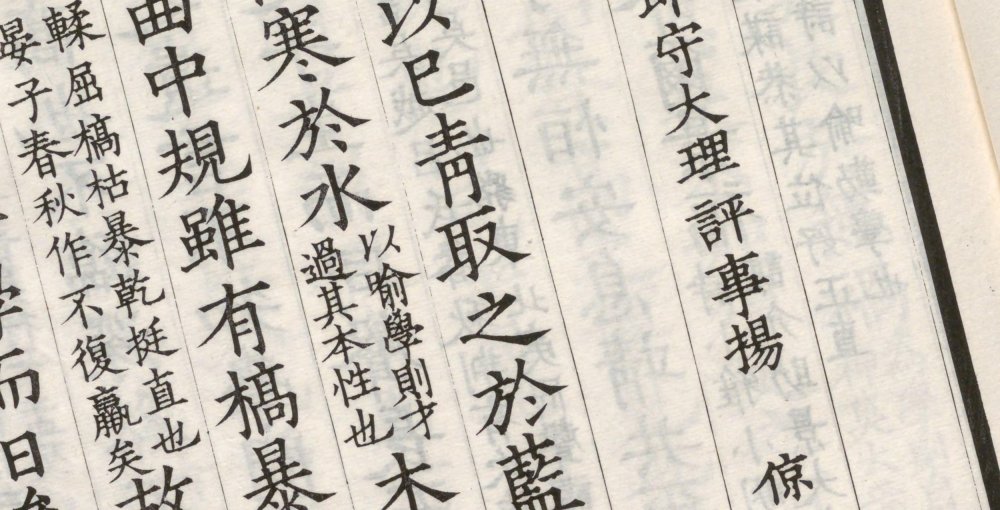 守大理評事揚　倞
以已青取之於藍
寒於水
以喻學則才
過其本性也
木
曲中規雖有槁暴
輮屈槁枯暴乾挺直也
晏子春秋作不復贏矣
故
而日